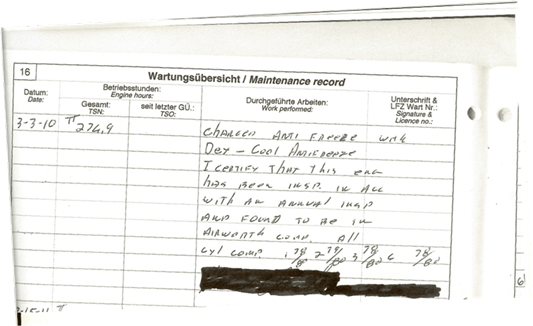 16
Wartungsübersicht / Maintenance record
Datum:
Date:
Betriebsstunden:
Engine hours:
Gesamt:
TSN:
seit letzter GÜ.:
TSO:
Durchgeführte Arbeiten:
Work performed:
Unterschrift &
LFZ Wart Nr.:
Signature &
Licence no.:
3-3-10 TT 276.9 CHANGED ANTI FREEZE WITH
DEX-COOL ANTIFREEZE
I CERTIFY THAT THIS ENG
HAS BEEN INSP. IN ACC
WITH AN ANNUAL INSP
AND FOUND TO BE IN
AIRWORTH COND. All
CYL COMP. 1 78/80 2 78/80 3 78/80 4 78/80
TT
6